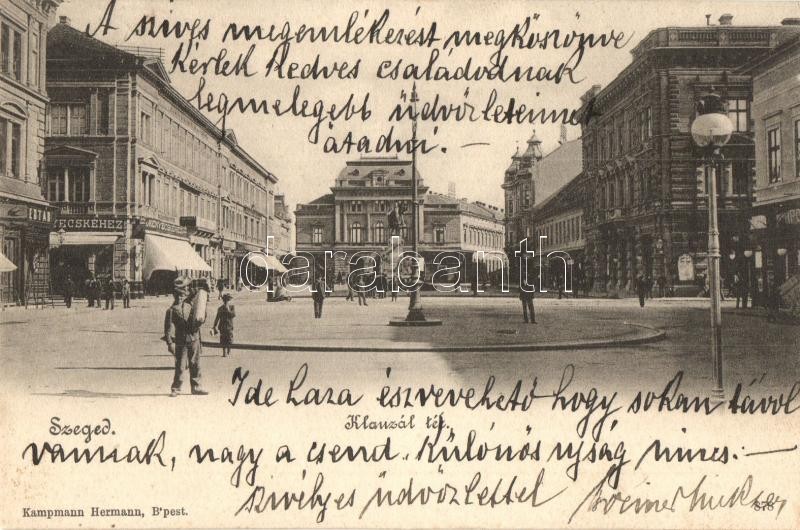 A szives megemlékezést megköszönve
kérlek kedves családodnak
legmelegebb üdvözleteimet
átadni.-
FEBTÁN
ECSKÉHEZ
darabanth
Ide haza észrevehető hogy sokan távol
Szeged. Klauzál tér.
vannak, nagy a csend. Különös ujság nincs.-
szivélyes üdvözlettel
Kampmann Hermann, B'pest. 878